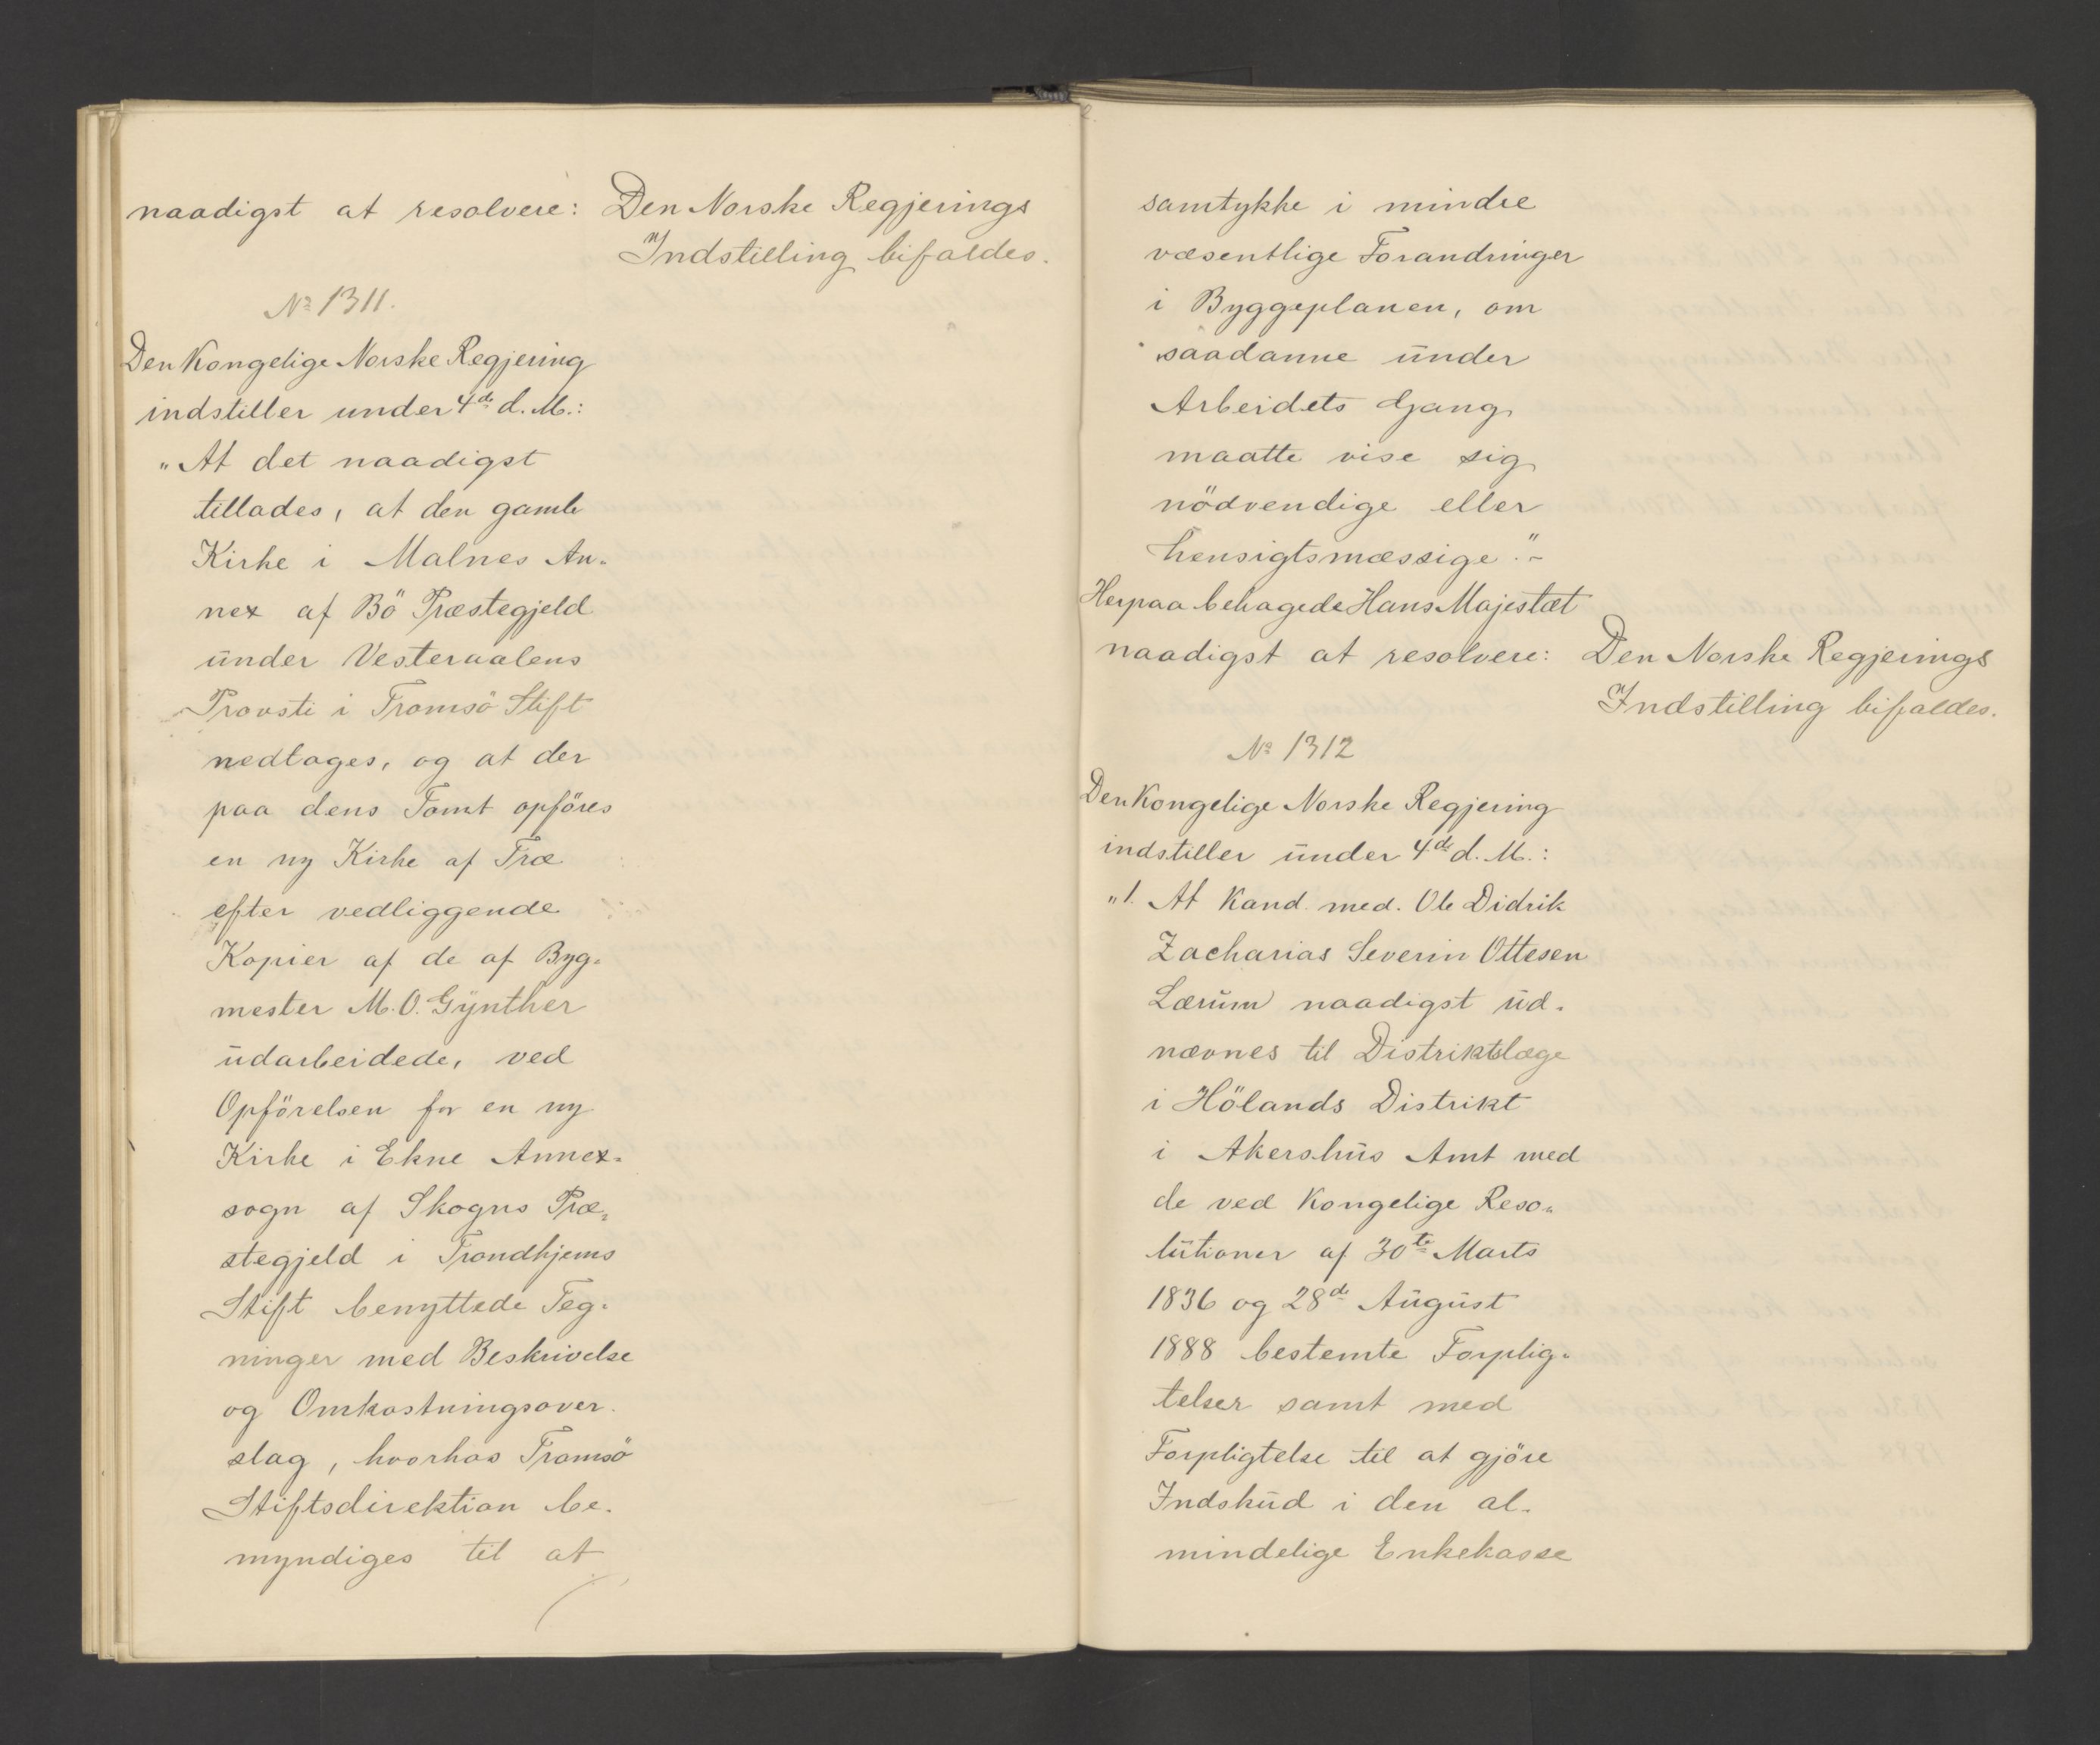 naadigst at resolvere: Den Norske Regjerings
Indstilling bifaldes.
No 1311.
Den Kongelige Norske Regjering
indstiller under 4de d. M.:
„At det naadigst
tillades, at den gamle
Kirke i Malnes An-
nex af Bö Præstegjeld
under Vesteraalens
Provsti i Tromsö Stift
nedtages, og at der
paa dens Tomt opföres
en ny Kirke af Træ
efter vedliggende
Kopier af de af Byg-
mester M. O. Gynther
udarbeidede, ved
Opförelsen for en ny
Kirke i Ekne Annex-
sogn af Skogns Præ-
stegjeld i Trondhjems
Stift benyttede Teg-
ninger med Beskrivelse
og Omkostningsover-
slag, hvorhos Tromsö
Stiftsdirektion be-
myndiges til at
samtykke i mindre
væsentlige Forandringer
i Byggeplanen, om
saadanne under
Arbeidets Gang
maatte vise sig
nödvendige eller
hensigtsmæssige."-
Herpaa behagede Hans Majestæt
naadigst at resolvere: Den Norske Regjerings
Indstilling bifaldes.
No 1312
Den Kongelige Norske Regjering
indstiller under 4de d. M.:
„1. At Kand. med. Ole Didrik
Zacharias Severin Ottesen
Lærum naadigst ud-
nævnes til Distriktslæge
i Hölands Distrikt
i Akershus Amt med
de ved Kongelige Reso-
lutioner af 30te Marts
1836 og 28de August
1888 bestemte Forplig-
telser samt med
Forpligtelse til at gjöre
Indskud i den al-
mindelige Enkekasse